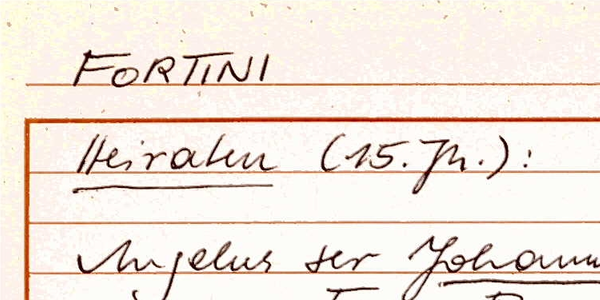 FORTINI
Heiraten (15. Jh.):
Angelus ser